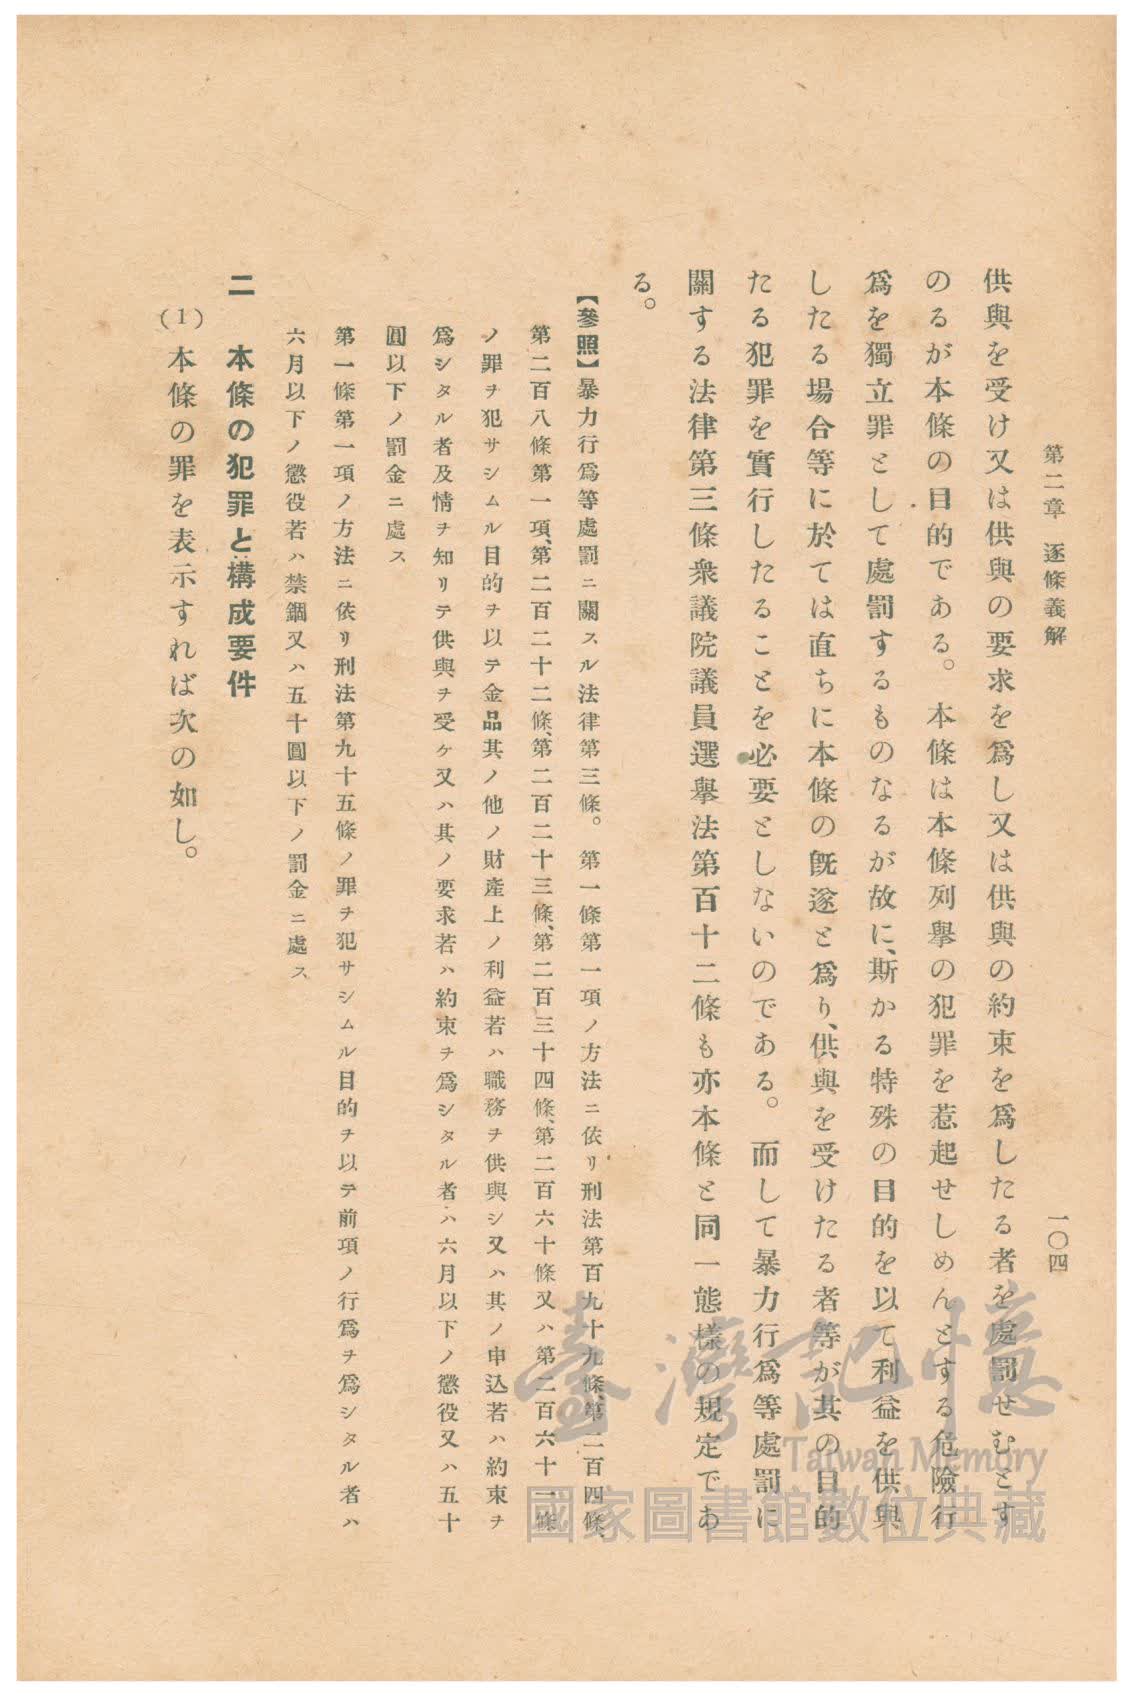 第二章　逐條義解
一〇四
供與を受け又は供與の要求を爲し又は供與の約束を爲したる者を處罰せむとす
のるが本條の目的である。本條は本條列擧の犯罪を惹起せしめんとする危險行
爲を獨立罪として處罰するものなるが故に、斯かる特殊の目的を以て利益を供與
したる場合等に於ては直ちに本條の既遂と爲り、供與を受けたる者等が其の目的
たる犯罪を實行したることを必要としないのである。而して暴力行爲等處罰に
關する法律第三條衆議院議員選擧法第百十二條も亦本條と同一態樣の規定であ
る。
【參照】暴力行爲等處罰ニ關スル法律第三條。第一條第一項ノ方法ニ依リ刑法第百九十九條、第二百四條、
第二百八條第一項、第二百二十二條、第二百二十三條、第二百三十四條、第二百六十條又ハ第二百六十一條
ノ罪ヲ犯サシムル目的ヲ以テ金品其ノ他ノ財產上ノ利益若ハ職務ヲ供與シ又ハ其ノ申込若ハ約束ヲ
爲シタル者及情ヲ知リテ供與ヲ受ケ又ハ其ノ要求若ハ約束ヲ爲シタル者ハ六月以下ノ懲役又ハ五十
圓以下ノ罰金ニ處ス
第一條第一項ノ方法ニ依リ刑法第九十五條ノ罪ヲ犯サシムル目的ヲ以テ前項ノ行爲ヲ爲シタル者ハ
六月以下ノ懲役若ハ禁錮又ハ五十圓以下ノ罰金ニ處ス
二　本條の犯罪と構成要件
(1)本條の罪を表示すれば次の如し。
臺灣記憶
Taiwan Memory
國家圖書館數位典藏